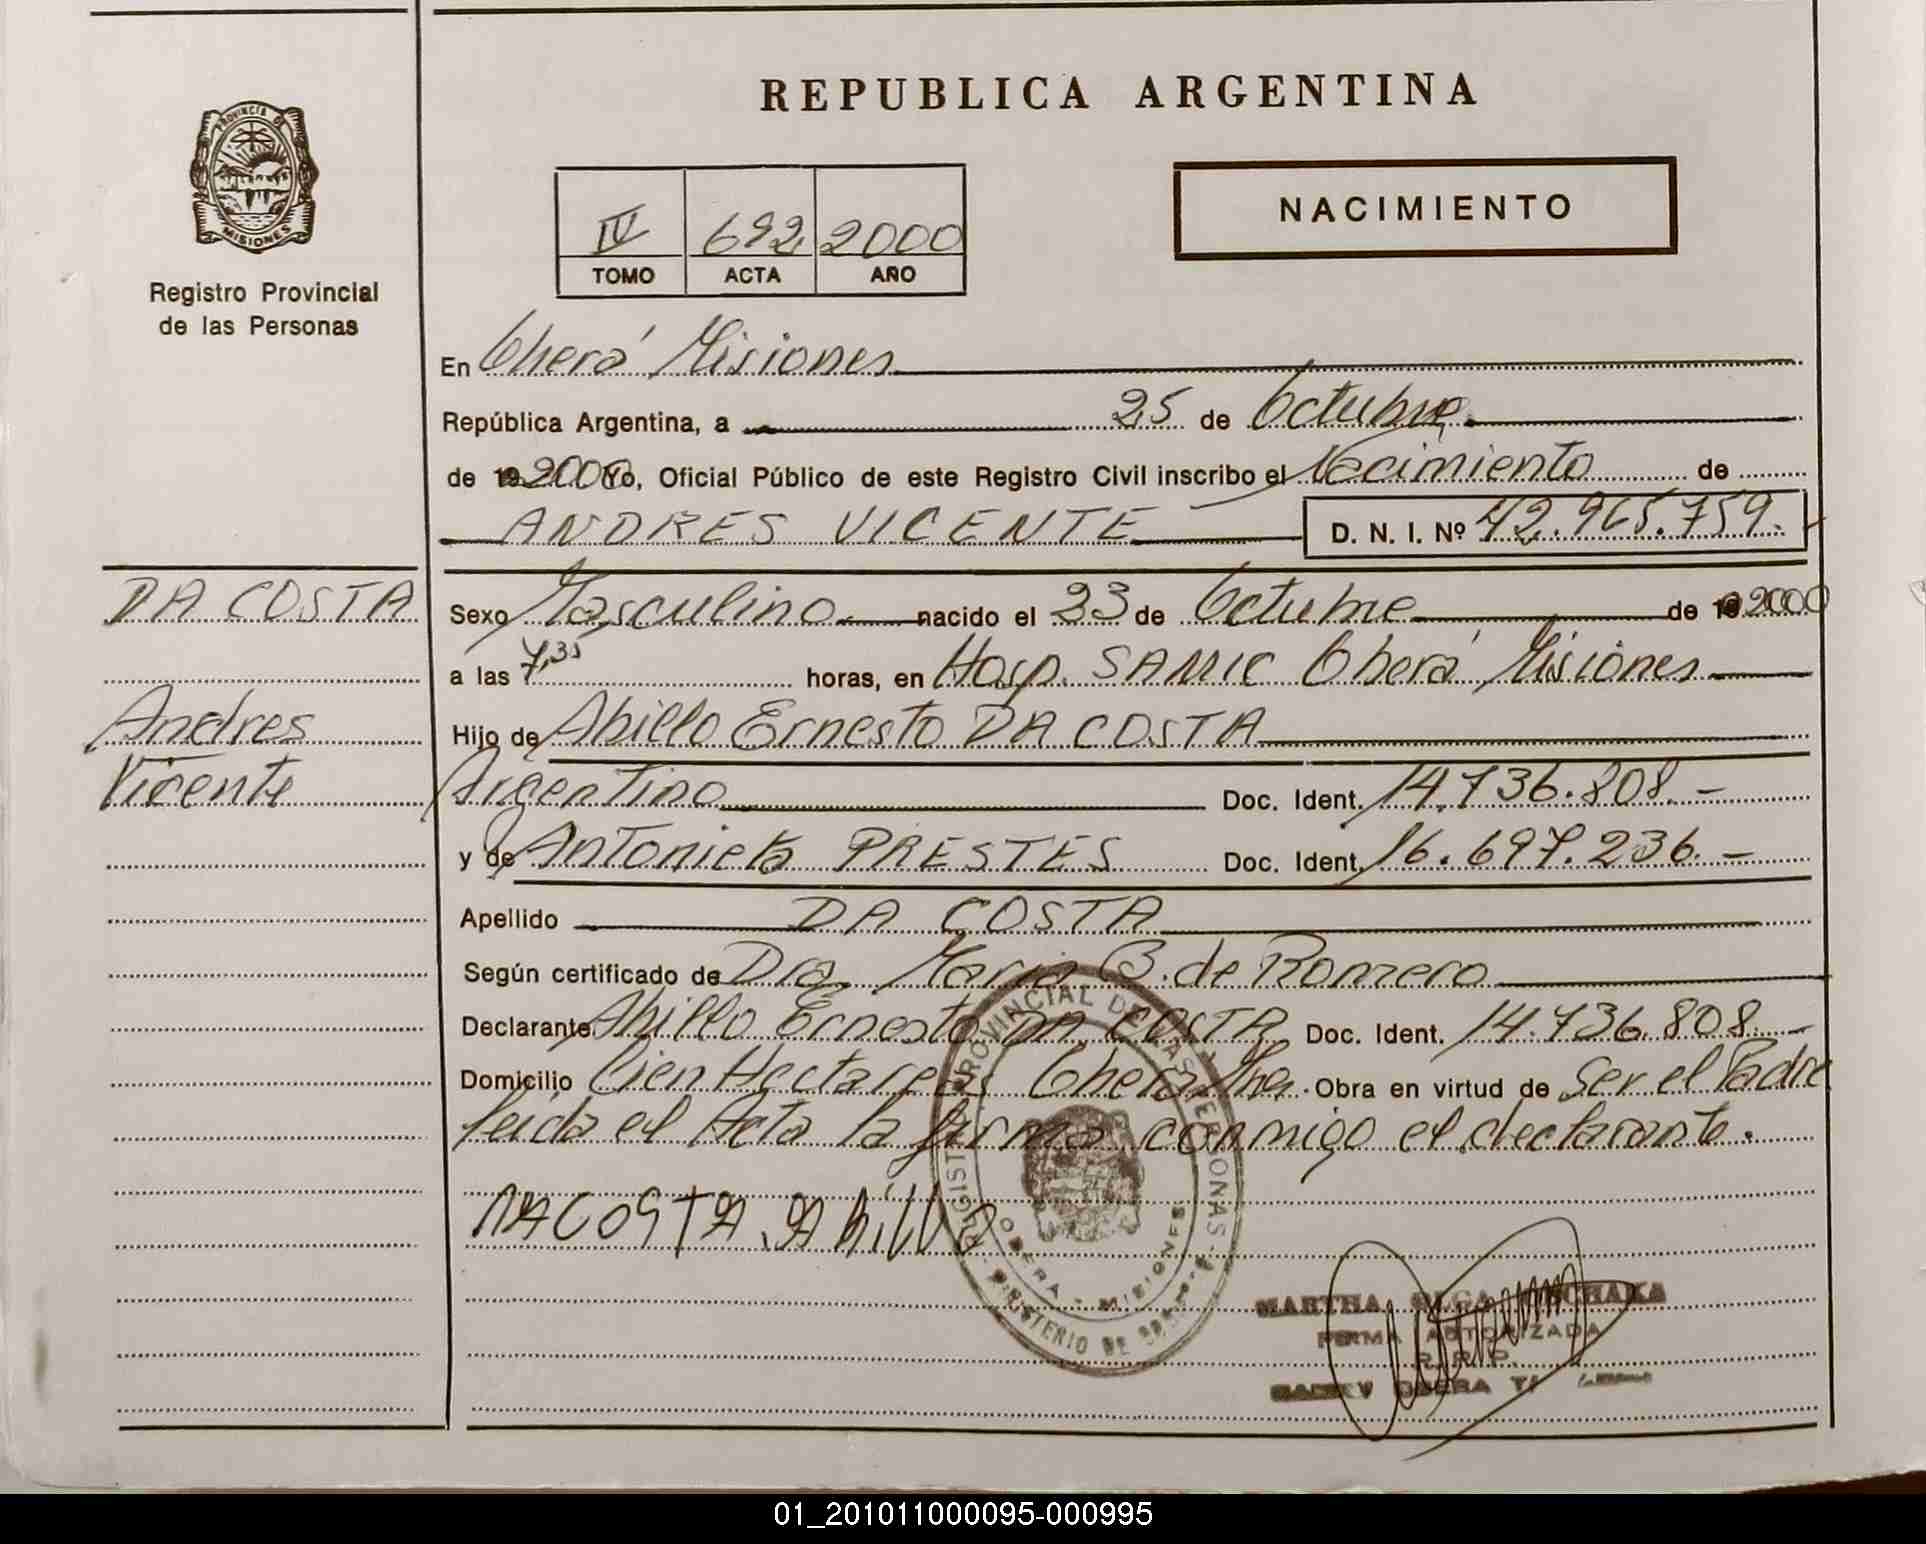 REPUBLICA ARGENTINA
PROVINCIA DE
MISIONES
Registro Provincial
de las Personas
NACIMIENTO
IV 692 2000
TOMO ACTA AÑO
En Oberá Misiones
República Argentina, a 25 de Octubre
de 19 2000 Yo, Oficial Público de este Registro Civil inscribo el Nacimiento de
ANDRES VICENTE D. N. I. Nº 42.965.759.
DA COSTA
Andres
Vicente
Sexo Masculino nacido el 23 de Octubre de 19 2000
a las 7,35 horas, en Hosp. SAMIC Oberá Misiones
Hijo de Abillo Ernesto DA COSTA
Argentino Doc. Ident. 14.736.808.-
y de Antonieta PRESTES Doc. Ident. 16.697.236.-
Apellido DA COSTA
Según certificado de Dra. Maria B. de Romero
Declarante Abillo Ernesto DA COSTA Doc. Ident. 14.736.808.-
Domicilio Cien Hectareas Oberá Mnes. Obra en virtud de Ser el Padre
leida el Acta la firma conmigo el declarante.
DACOSTA. ABILLO
REGISTRO PROVINCIAL DE LAS PERSONAS
OBERA - MISIONES
MINISTERIO DE
MARTHA OLGA
FIRMA AUTORIZADA
R. R. P.
OBERA
01_201011000095-000995